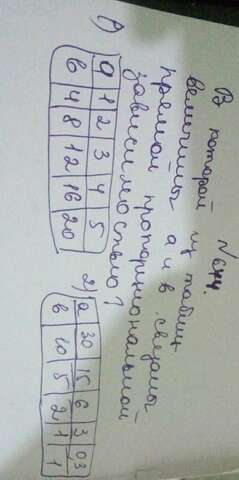 №644.
В которой из таблиц
величины а и в связаны
прямой пропорциональной
зависимостью?
1) a 1 2 3 4 5
в 4 8 12 16 20
2) a 30 15 6 3 03
в 10 5 2 1 1